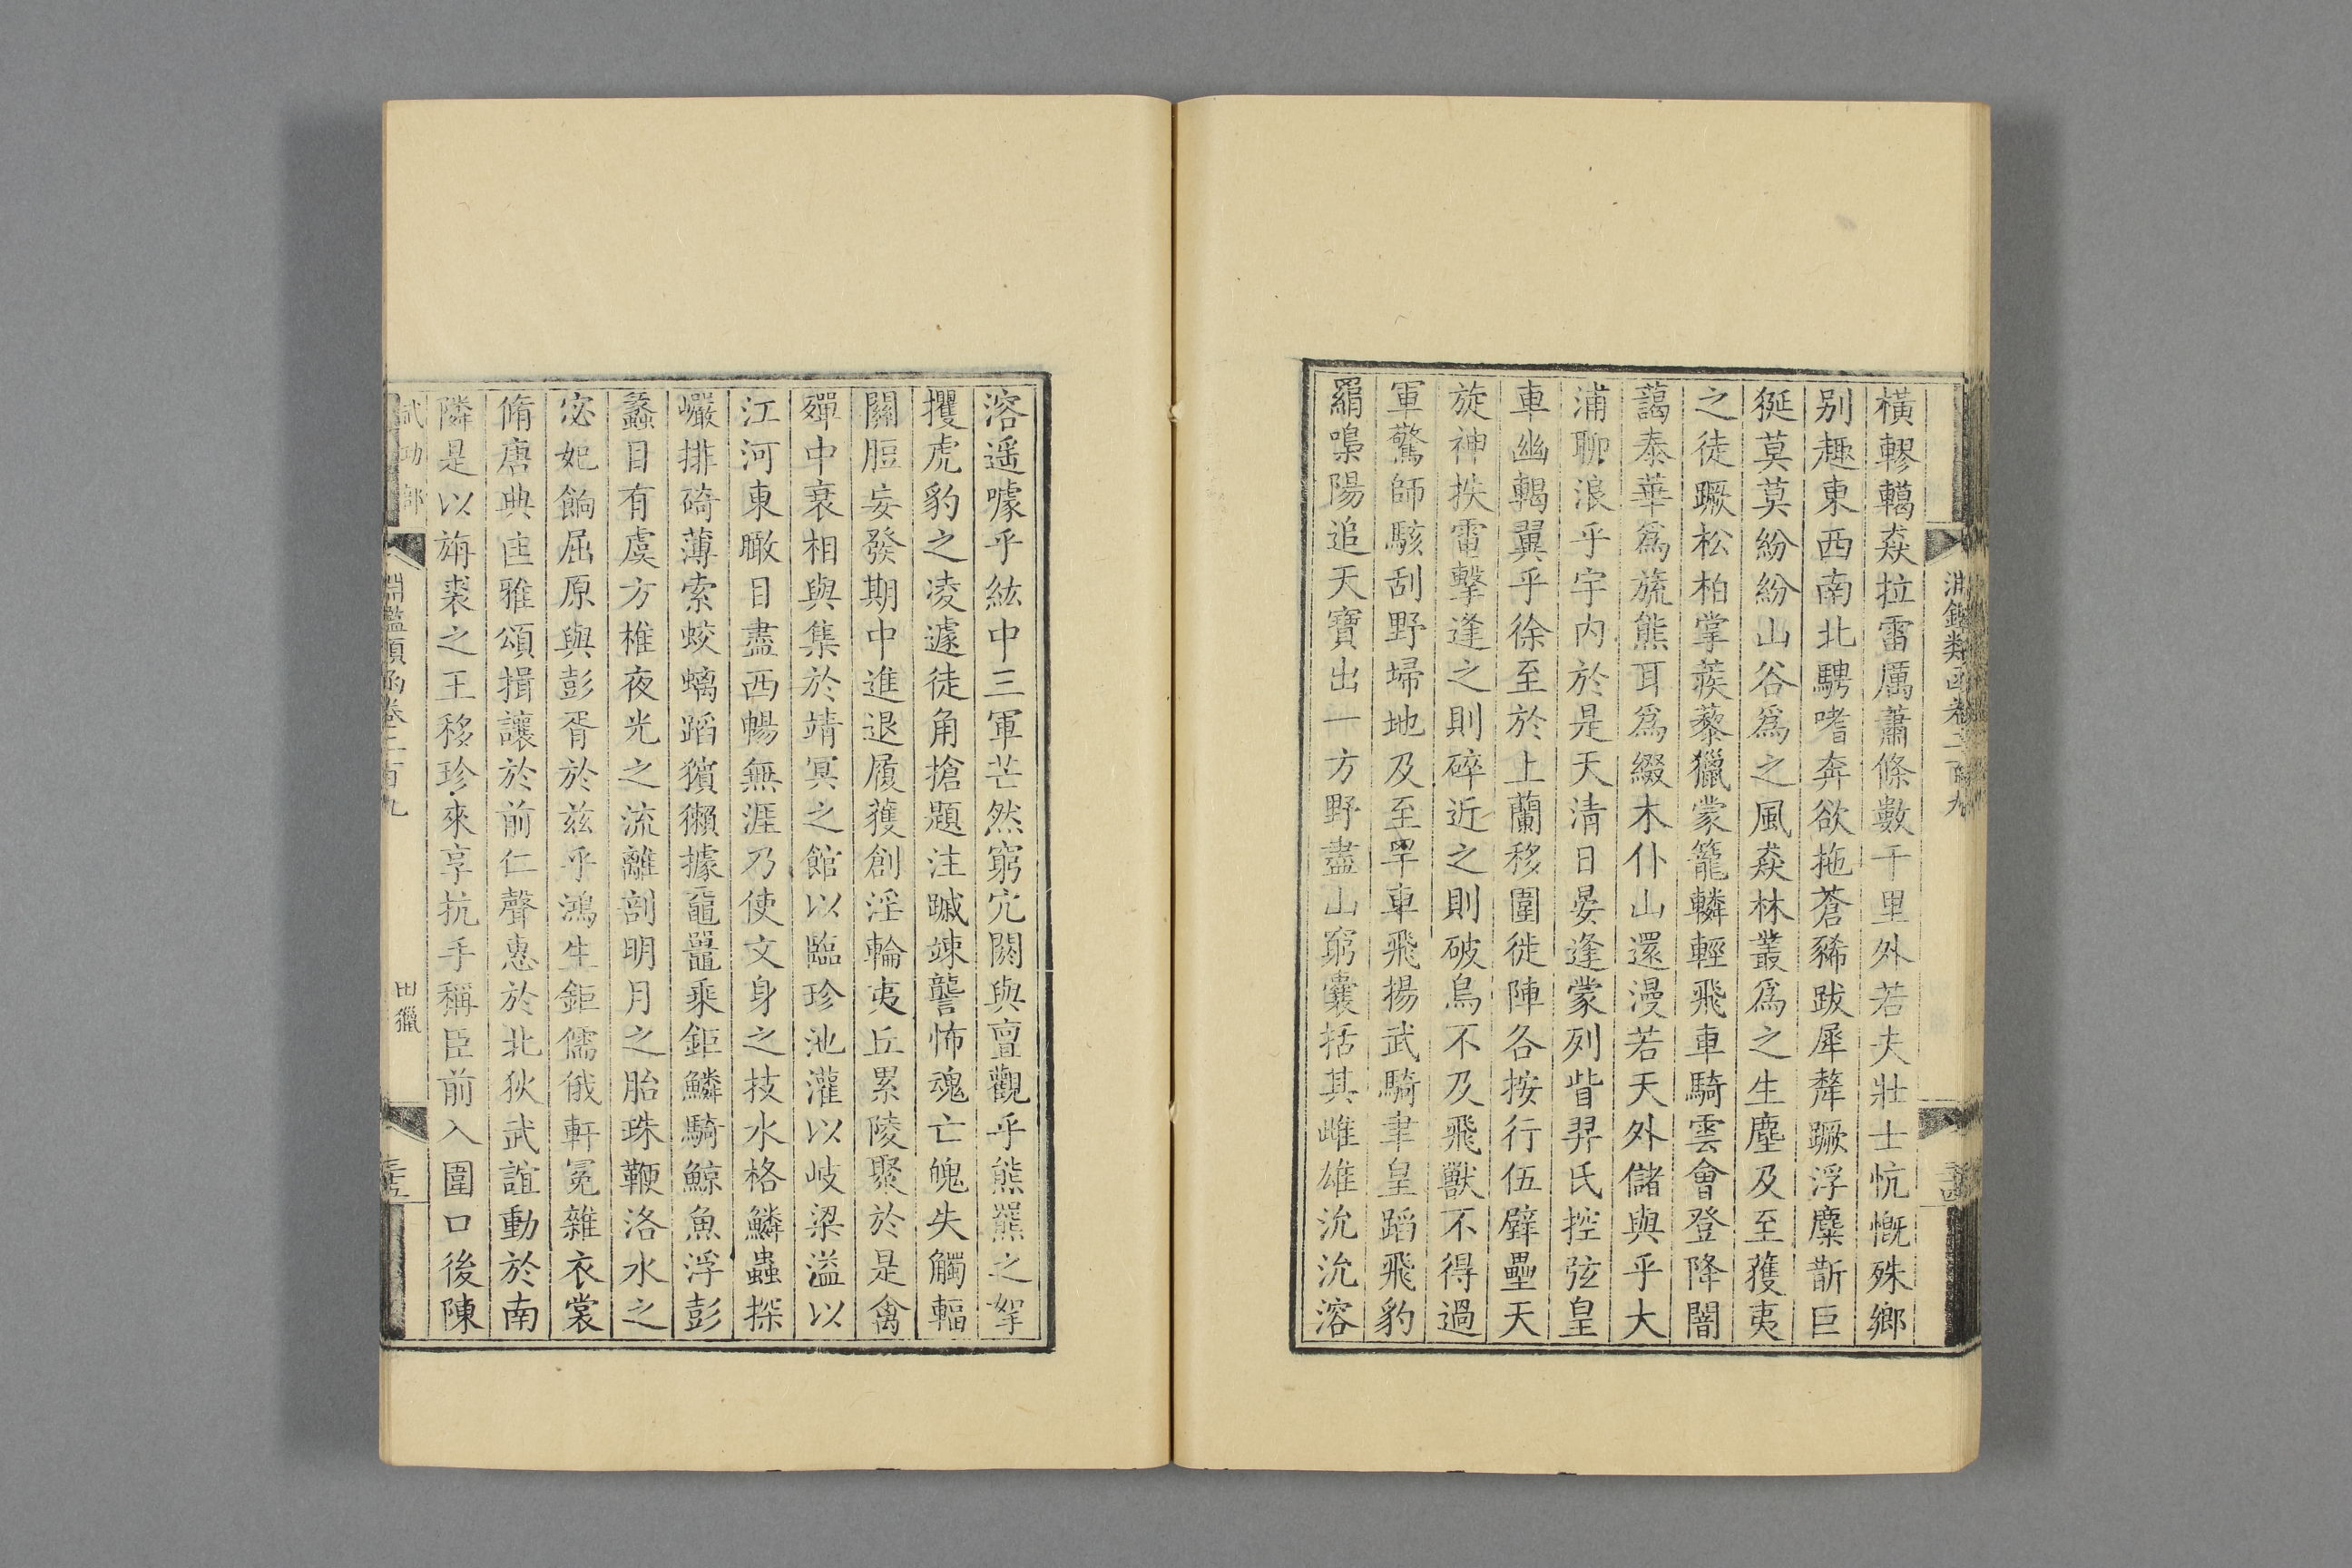 橫轇轕猋拉雷厲蕭條數千里外若夫壯士忼慨殊鄉
別趣東西南北騁嗜奔欲拖蒼豨跋犀犛蹶浮麋斮巨
狿莫莫紛紛山谷爲之風猋林叢爲之生塵及至獲夷
之徒蹶松柏掌蒺藜獵蒙籠轔輕飛車騎雲會登降闇
藹泰華爲旒熊耳爲綴木仆山還漫若天外儲與乎大
浦聊浪乎宇內於是天淸日晏逢蒙列眥羿氏控弦皇
車幽輵翼乎徐至於上蘭移圍徙陣各按行伍壁壘天
旋神抶雷擊逢之則碎近之則破鳥不及飛獸不得過
軍驚師駭刮野埽地及至罕車飛揚武騎聿皇蹈飛豹
羂嘄陽追天寶出一方野盡山窮囊括其雌雄沇沇溶
淵鑑類函卷二百九
溶遥噱乎紘中三軍芒然窮冘閼與亶觀乎熊羆之挐
攫虎豹之凌遽徒角搶題注蹴竦讋怖魂亡魄失觸輻
關脰妄發期中進退履獲創淫輪夷丘累陵聚於是禽
殫中衰相與集於靖冥之館以臨珍池灌以岐梁溢以
江河東瞰目盡西暢無涯乃使文身之技水格鱗蟲探
巗排碕薄索蛟螭蹈獱獺據黿鼉乘鉅鱗騎鯨魚浮彭
蠡目有虞方椎夜光之流離剖明月之胎珠鞭洛水之
宓妃餉屈原與彭胥於茲乎鴻生鉅儒俄軒冕雜衣裳
脩唐典匡雅頌揖讓於前仁聲惠於北狄武誼動於南
隣是以旃裘之王移珍來享抗手稱臣前入圍口後陳
武功部
淵鑑類函卷二百九
田獵